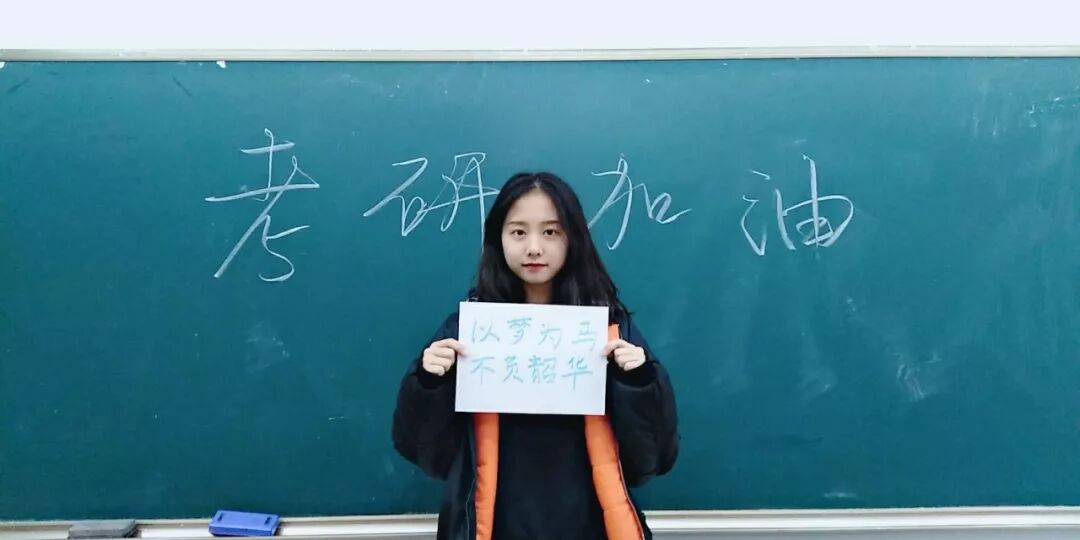 考研加油
以梦为马
不负韶华